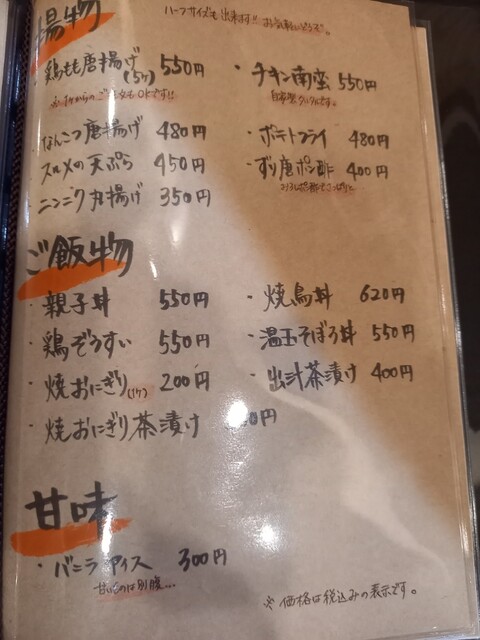 揚物
ハーフサイズも出来ます!! お気軽にどうぞ。
・鶏もも唐揚げ(5ケ) 550円
※1ケからのご注文もOKです!!
・チキン南蛮 550円
自家製タルタルです。
・なんこつ唐揚げ 480円
・ポテトフライ 480円
・スルメの天ぷら 450円
・ずり唐ポン酢 400円
・ニンニク丸揚げ 350円
ご飯物
・親子丼 550円
・焼鳥丼 620円
・鶏ぞうすい 550円
・温玉そぼろ丼 550円
・焼おにぎり(1ケ) 200円
・出汁茶漬け 400円
・焼おにぎり茶漬け 円
甘味
・バニラアイス 300円
甘いものは別腹...
※価格は税込みの表示です。